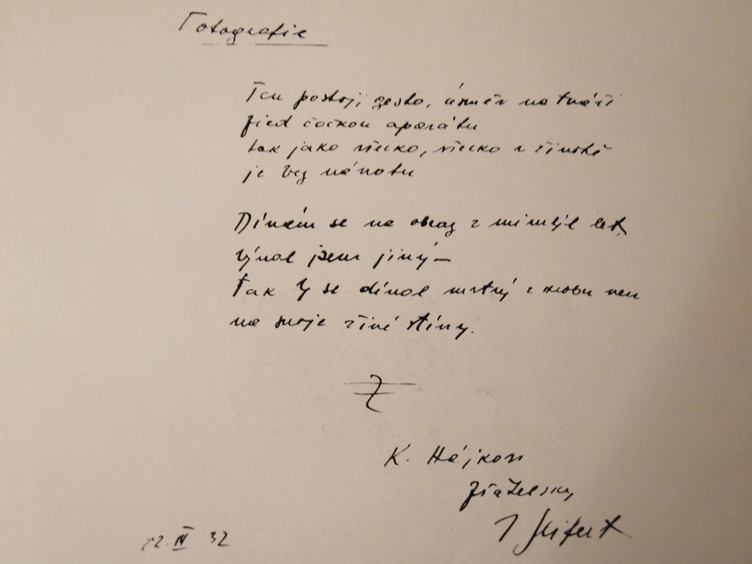 Fotografie
Ten postoj, gesto, úsměv na tváři
před čočkou aparátu
tak jako všecko, všecko v životě
je bez návratu
Dívám se na obraz z minulých let,
býval jsem jiný –
Tak by se díval mrtvý z hrobu ven
na svoje živé stíny.
K. Hájkovi
přátelsky
J Seifert
22. IV 32